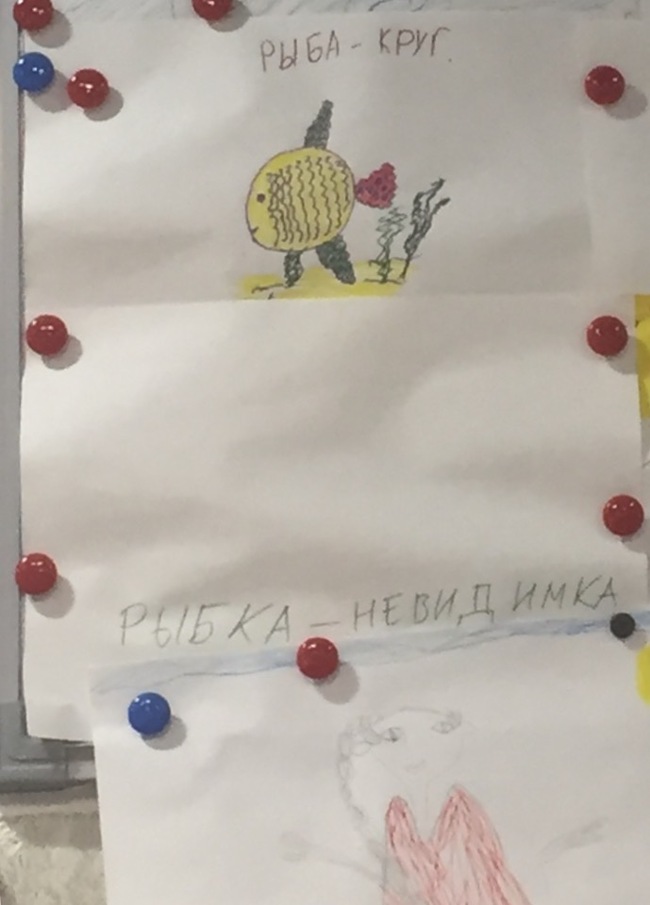 РЫБА - КРУГ.
РЫБКА - НЕВИДИМКА